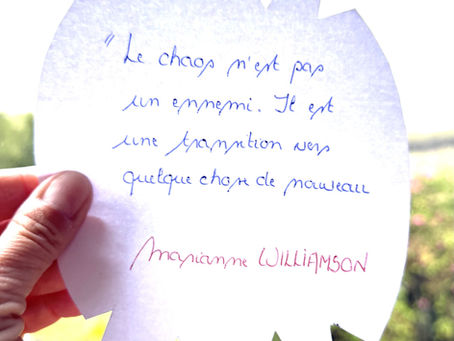 "Le chaos n'est pas
un ennemi. Il est
une transition vers
quelque chose de nouveau
Marianne WILLIAMSON